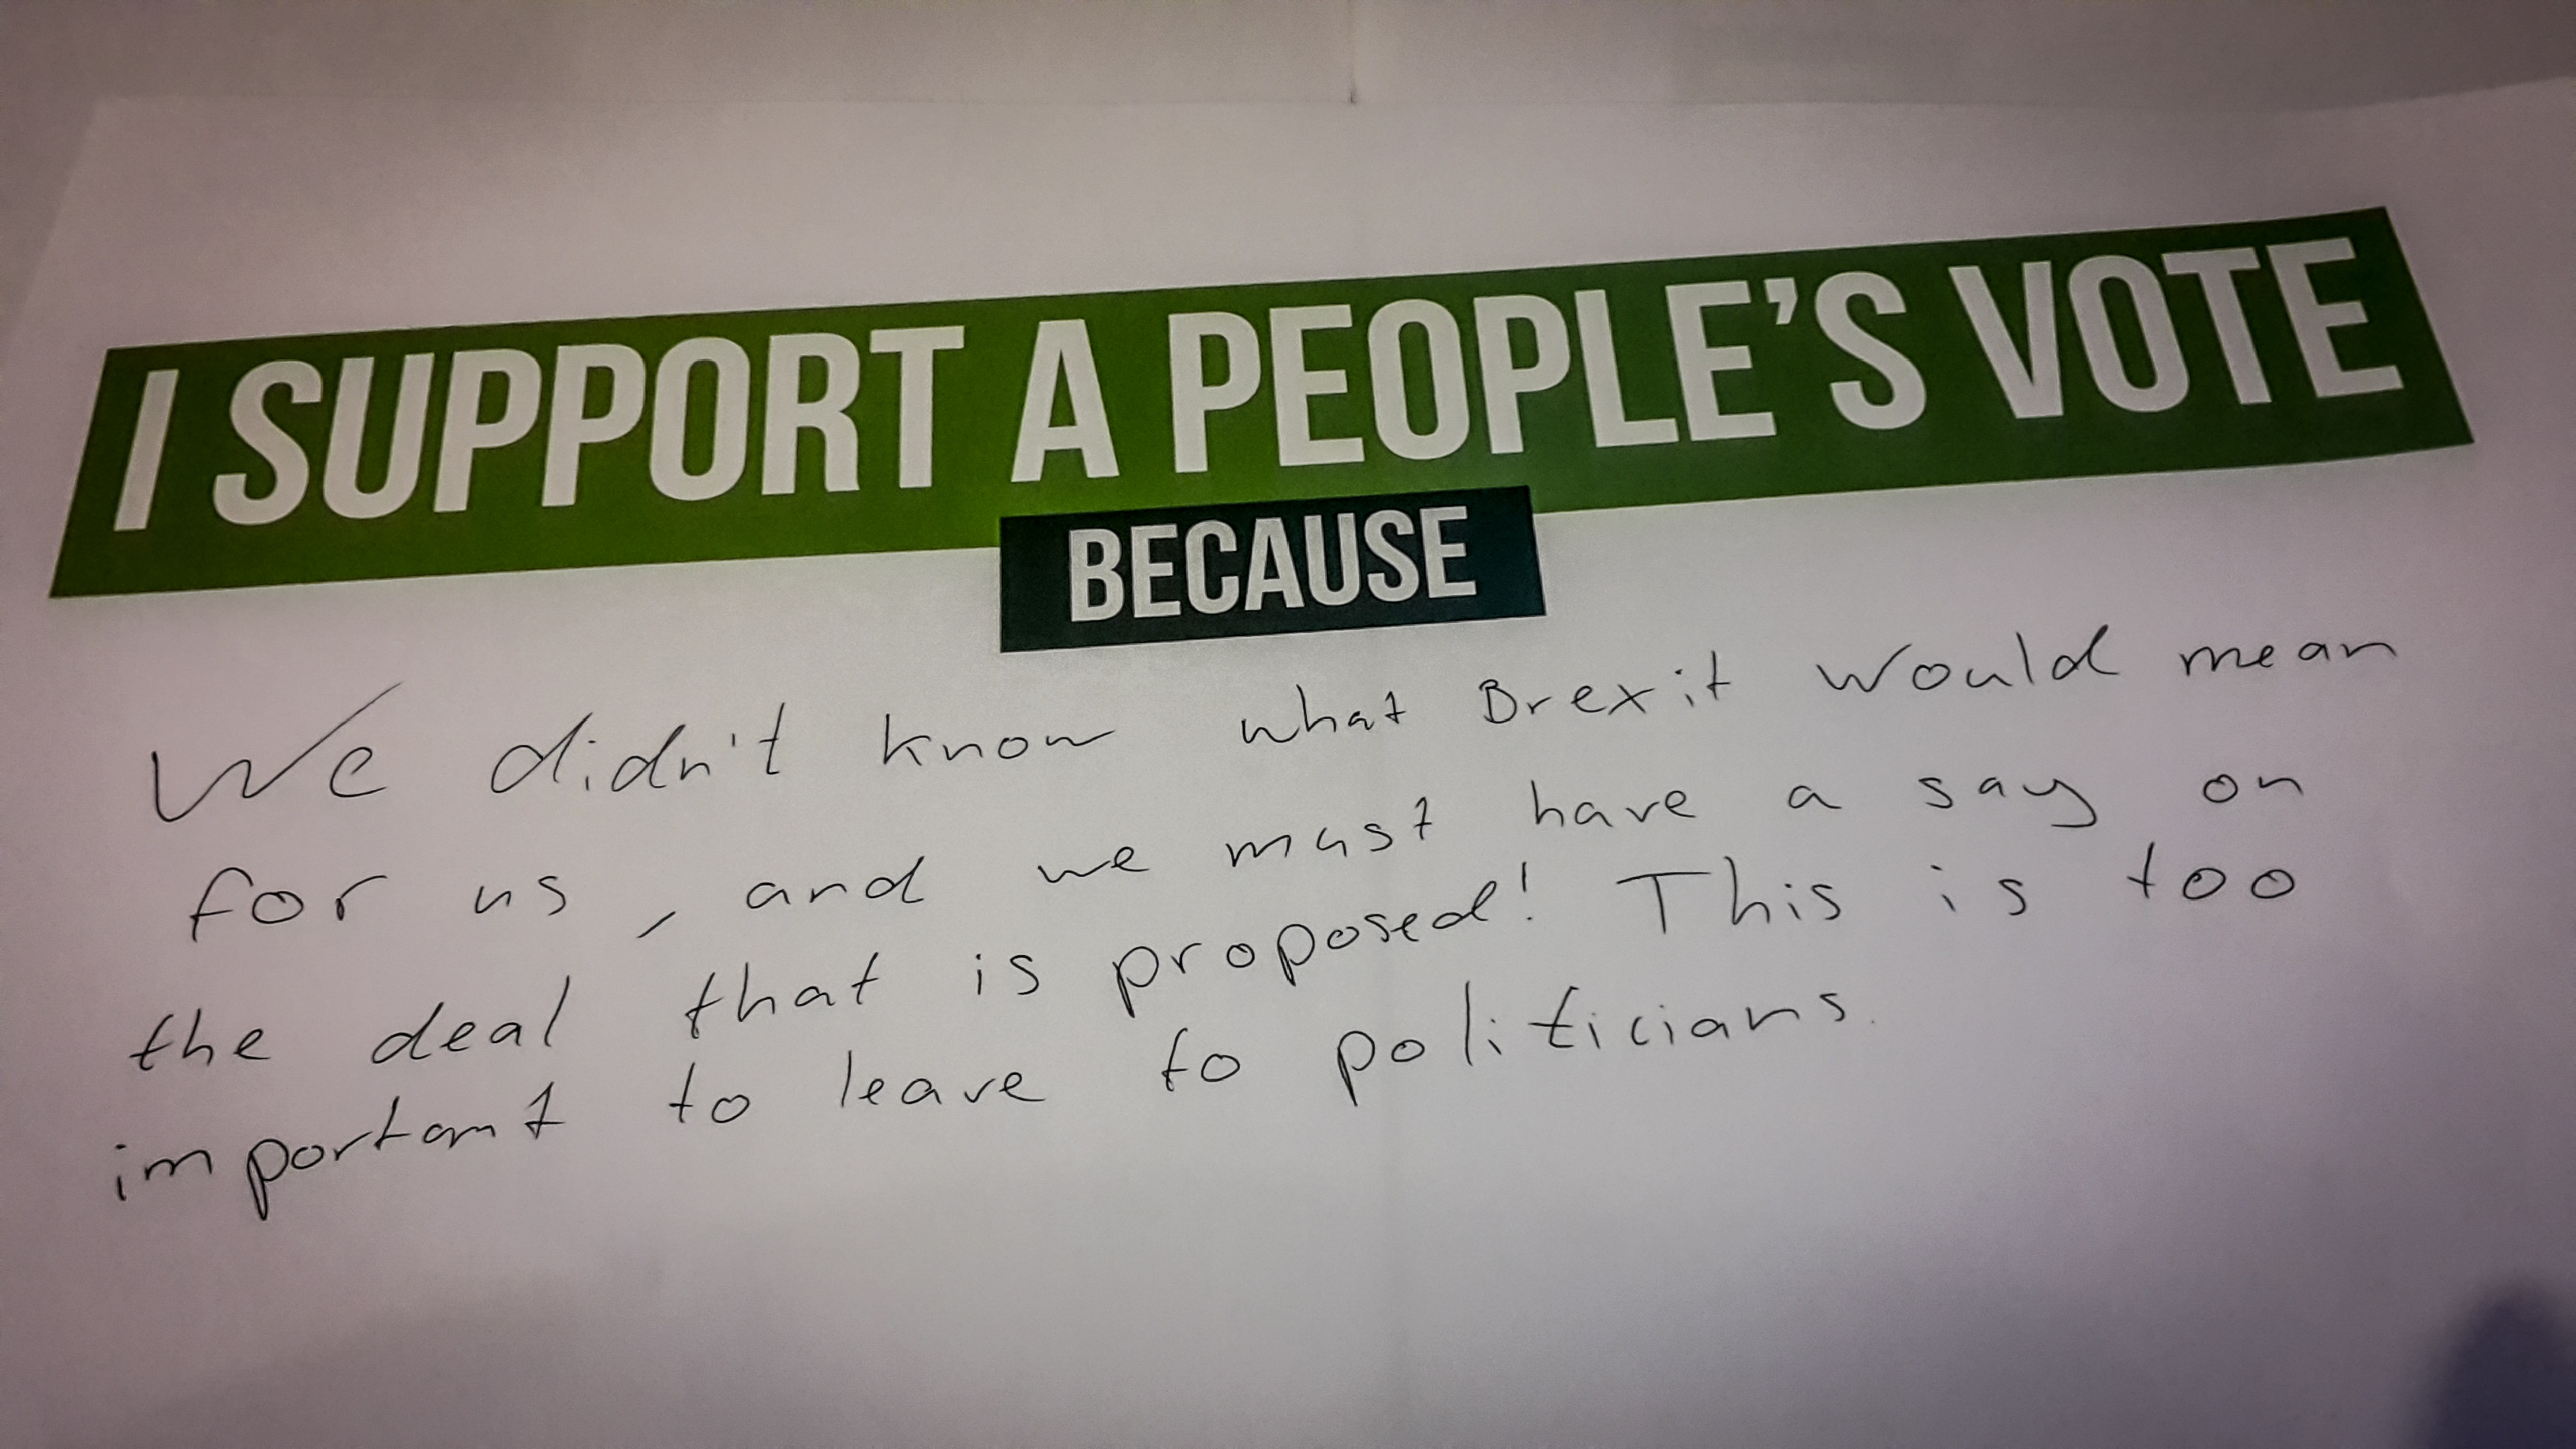 I SUPPORT A PEOPLE'S VOTE
BECAUSE
We didn't know what Brexit would mean
for us, and we must have a say on
the deal that is proposed! This is too
important to leave to politicians.